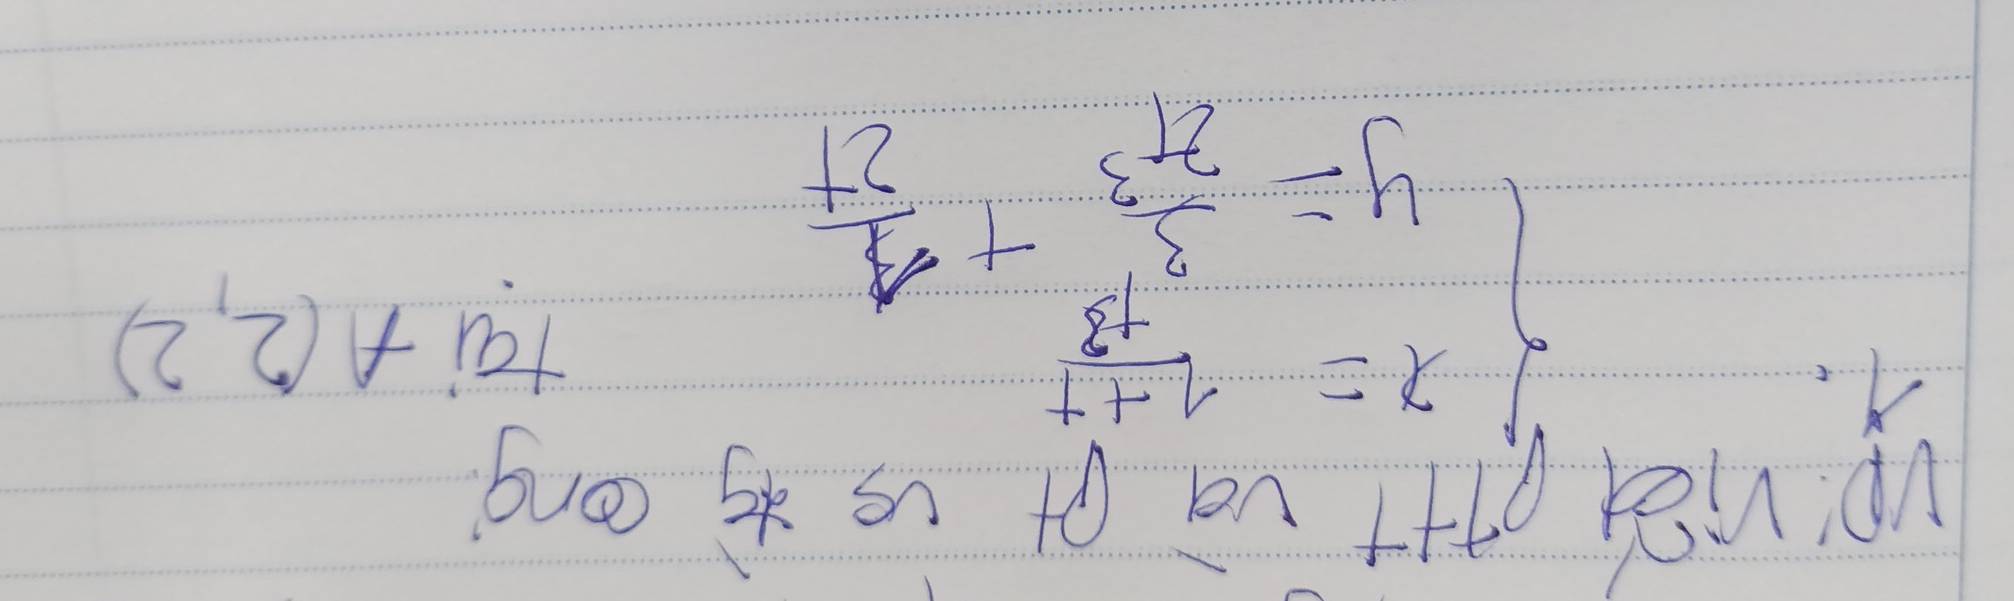 VD: Viết pttt và pt vs đg cong
1. { x = (1+t)/t³
y = 3/(2t³) + 1/(2t) tại A(2,2)